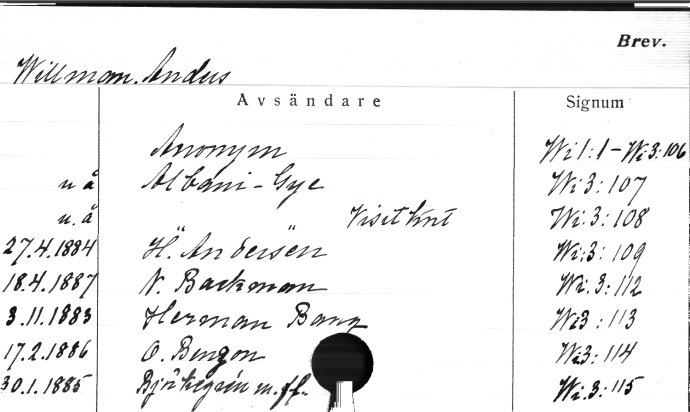 Brev.
Willman. Anders
Avsändare Signum
Anonym Wi 1:1 - Wi 3:106
u å Albani-Gye Wi 3:107
u. å " " Visitkort Wi. 3:108
27.4.1884 H. Andersén Wi: 3: 109
18.4.1887 N. Backman Wi. 3: 112
3.11.1883 Herman Bang Wi 3: 113
17.2.1886 O. Bengzon Wi 3: 114
30.1.1885 m. fl. Wi. 3: 115